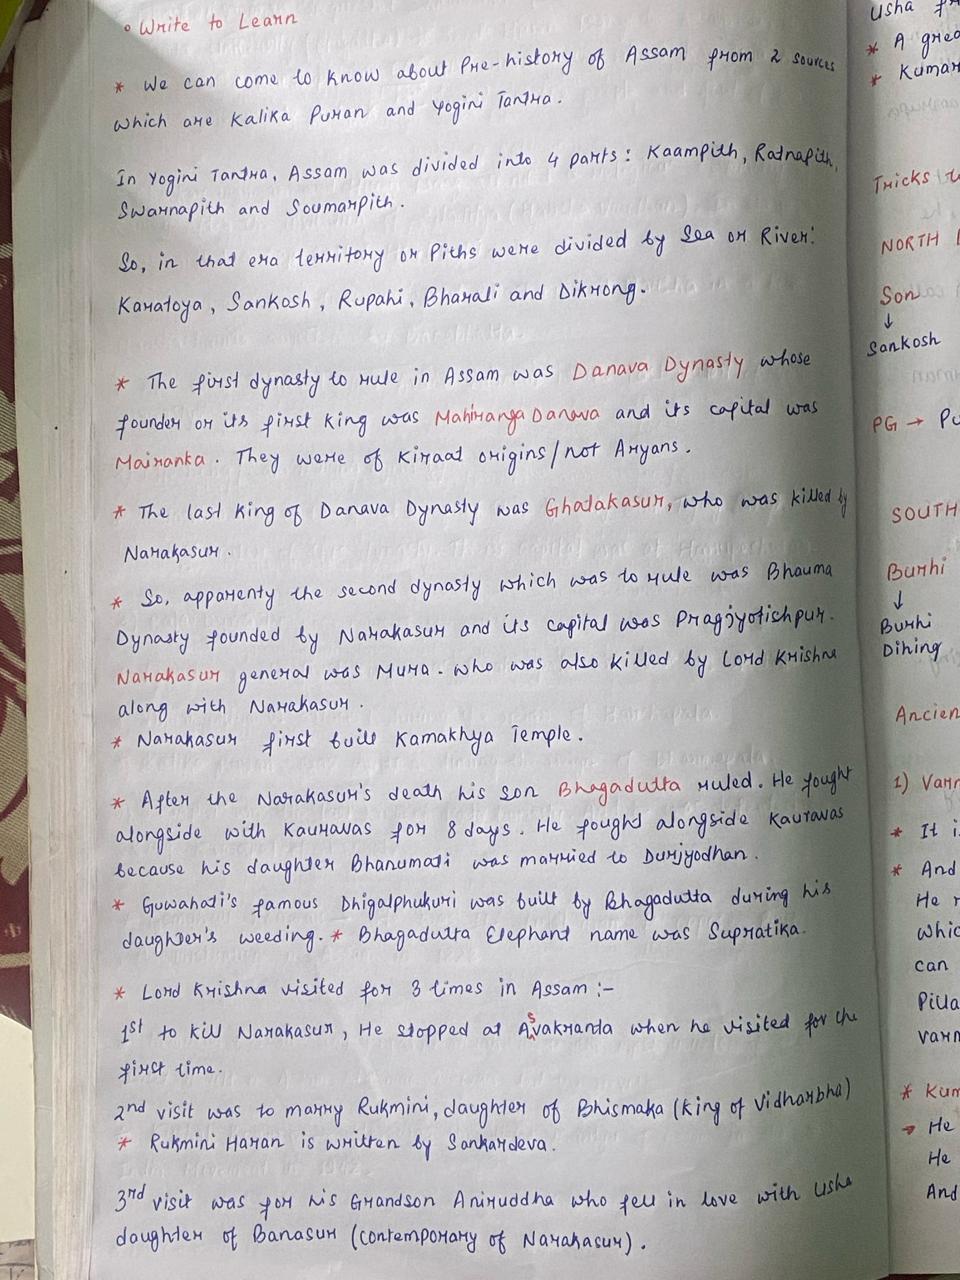 • Write to Learn
* We can come to know about Pre-history of Assam from 2 sources
which are Kalika Puran and Yogini Tantra.
In Yogini Tantra, Assam was divided into 4 parts: Kaampith, Ratnapith,
Swarnapith and Soumarpith.
So, in that era territory or Piths were divided by Sea or River:
Karatoya, Sankosh, Rupahi, Bharali and Dikrong.
* The first dynasty to rule in Assam was Danava Dynasty whose
founder or its first King was Mahiranga Danava and its capital was
Mairanka. They were of Kiraat origins/not Aryans.
* The last King of Danava Dynasty was Ghatakasur, who was killed by
Narakasur.
* So, apparenty the second dynasty which was to rule was Bhauma
Dynasty founded by Narakasur and its capital was Pragjyotishpur.
Narakasur general was Mura. who was also killed by Lord Krishna
along with Narakasur.
* Narakasur first built Kamakhya Temple.
* After the Narakasur's death his son Bhagadutta ruled. He fought
alongside with Kauravas for 8 days. He fought alongside Kauravas
because his daughter Bhanumati was married to Durjyodhan.
* Guwahati's famous Dhigalphukuri was built by Bhagadutta during his
daughter's weeding. * Bhagadutta Elephant name was Supratika.
* Lord Krishna visited for 3 times in Assam :-
1st to kill Narakasur, He stopped at Asvakranta when he visited for the
first time.
2nd visit was to marry Rukmini, daughter of Bhismaka (King of Vidharbha)
* Rukmini Haran is written by Sankardeva.
3rd visit was for his Grandson Aniruddha who fell in love with Usha
daughter of Banasur (contemporary of Narakasur).
Usha
* A
* Kumar
Tricks
NORTH
Son
↓
Sankosh
PG →
SOUTH
Burhi
↓
Burhi
Dihing
Ancien
1) Varm
*
* And
He
whic
can
Pilla
varm
* Kum
→ He
He
And